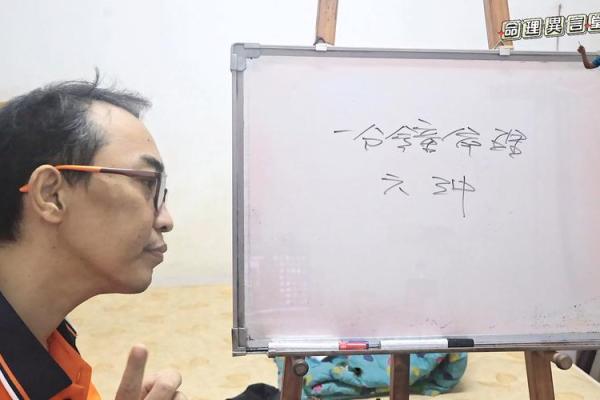 命理異言堂
一分鐘命理
六沖